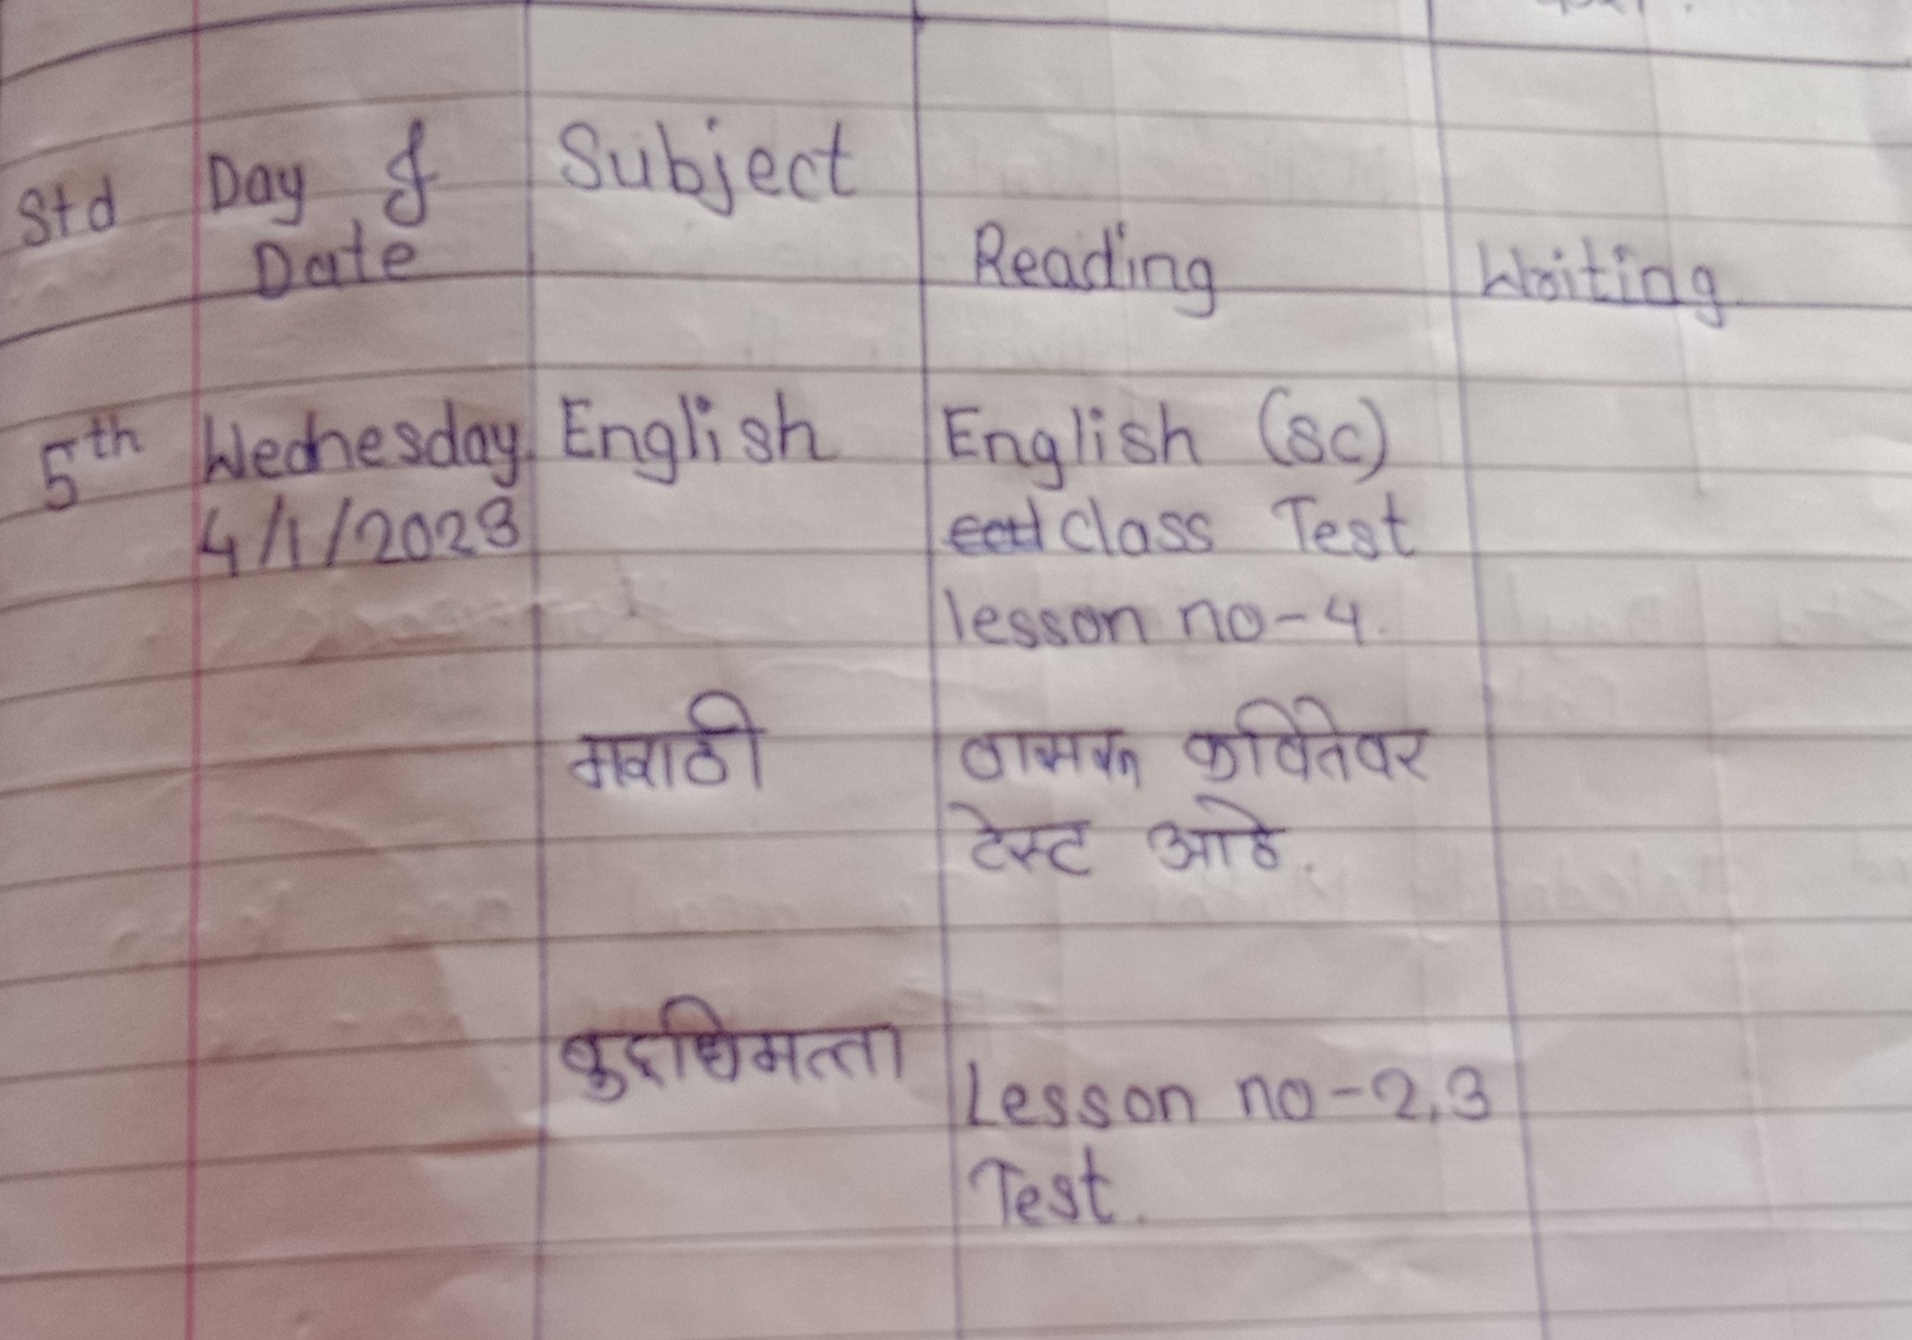 Std Day & Subject
Date Reading Writing
5th Wednesday English English (SC)
4/1/2023 class Test
lesson no-4.
मराठी कवितेवर
टेस्ट आहे.
बुद्धिमत्ता Lesson no-2,3
Test.